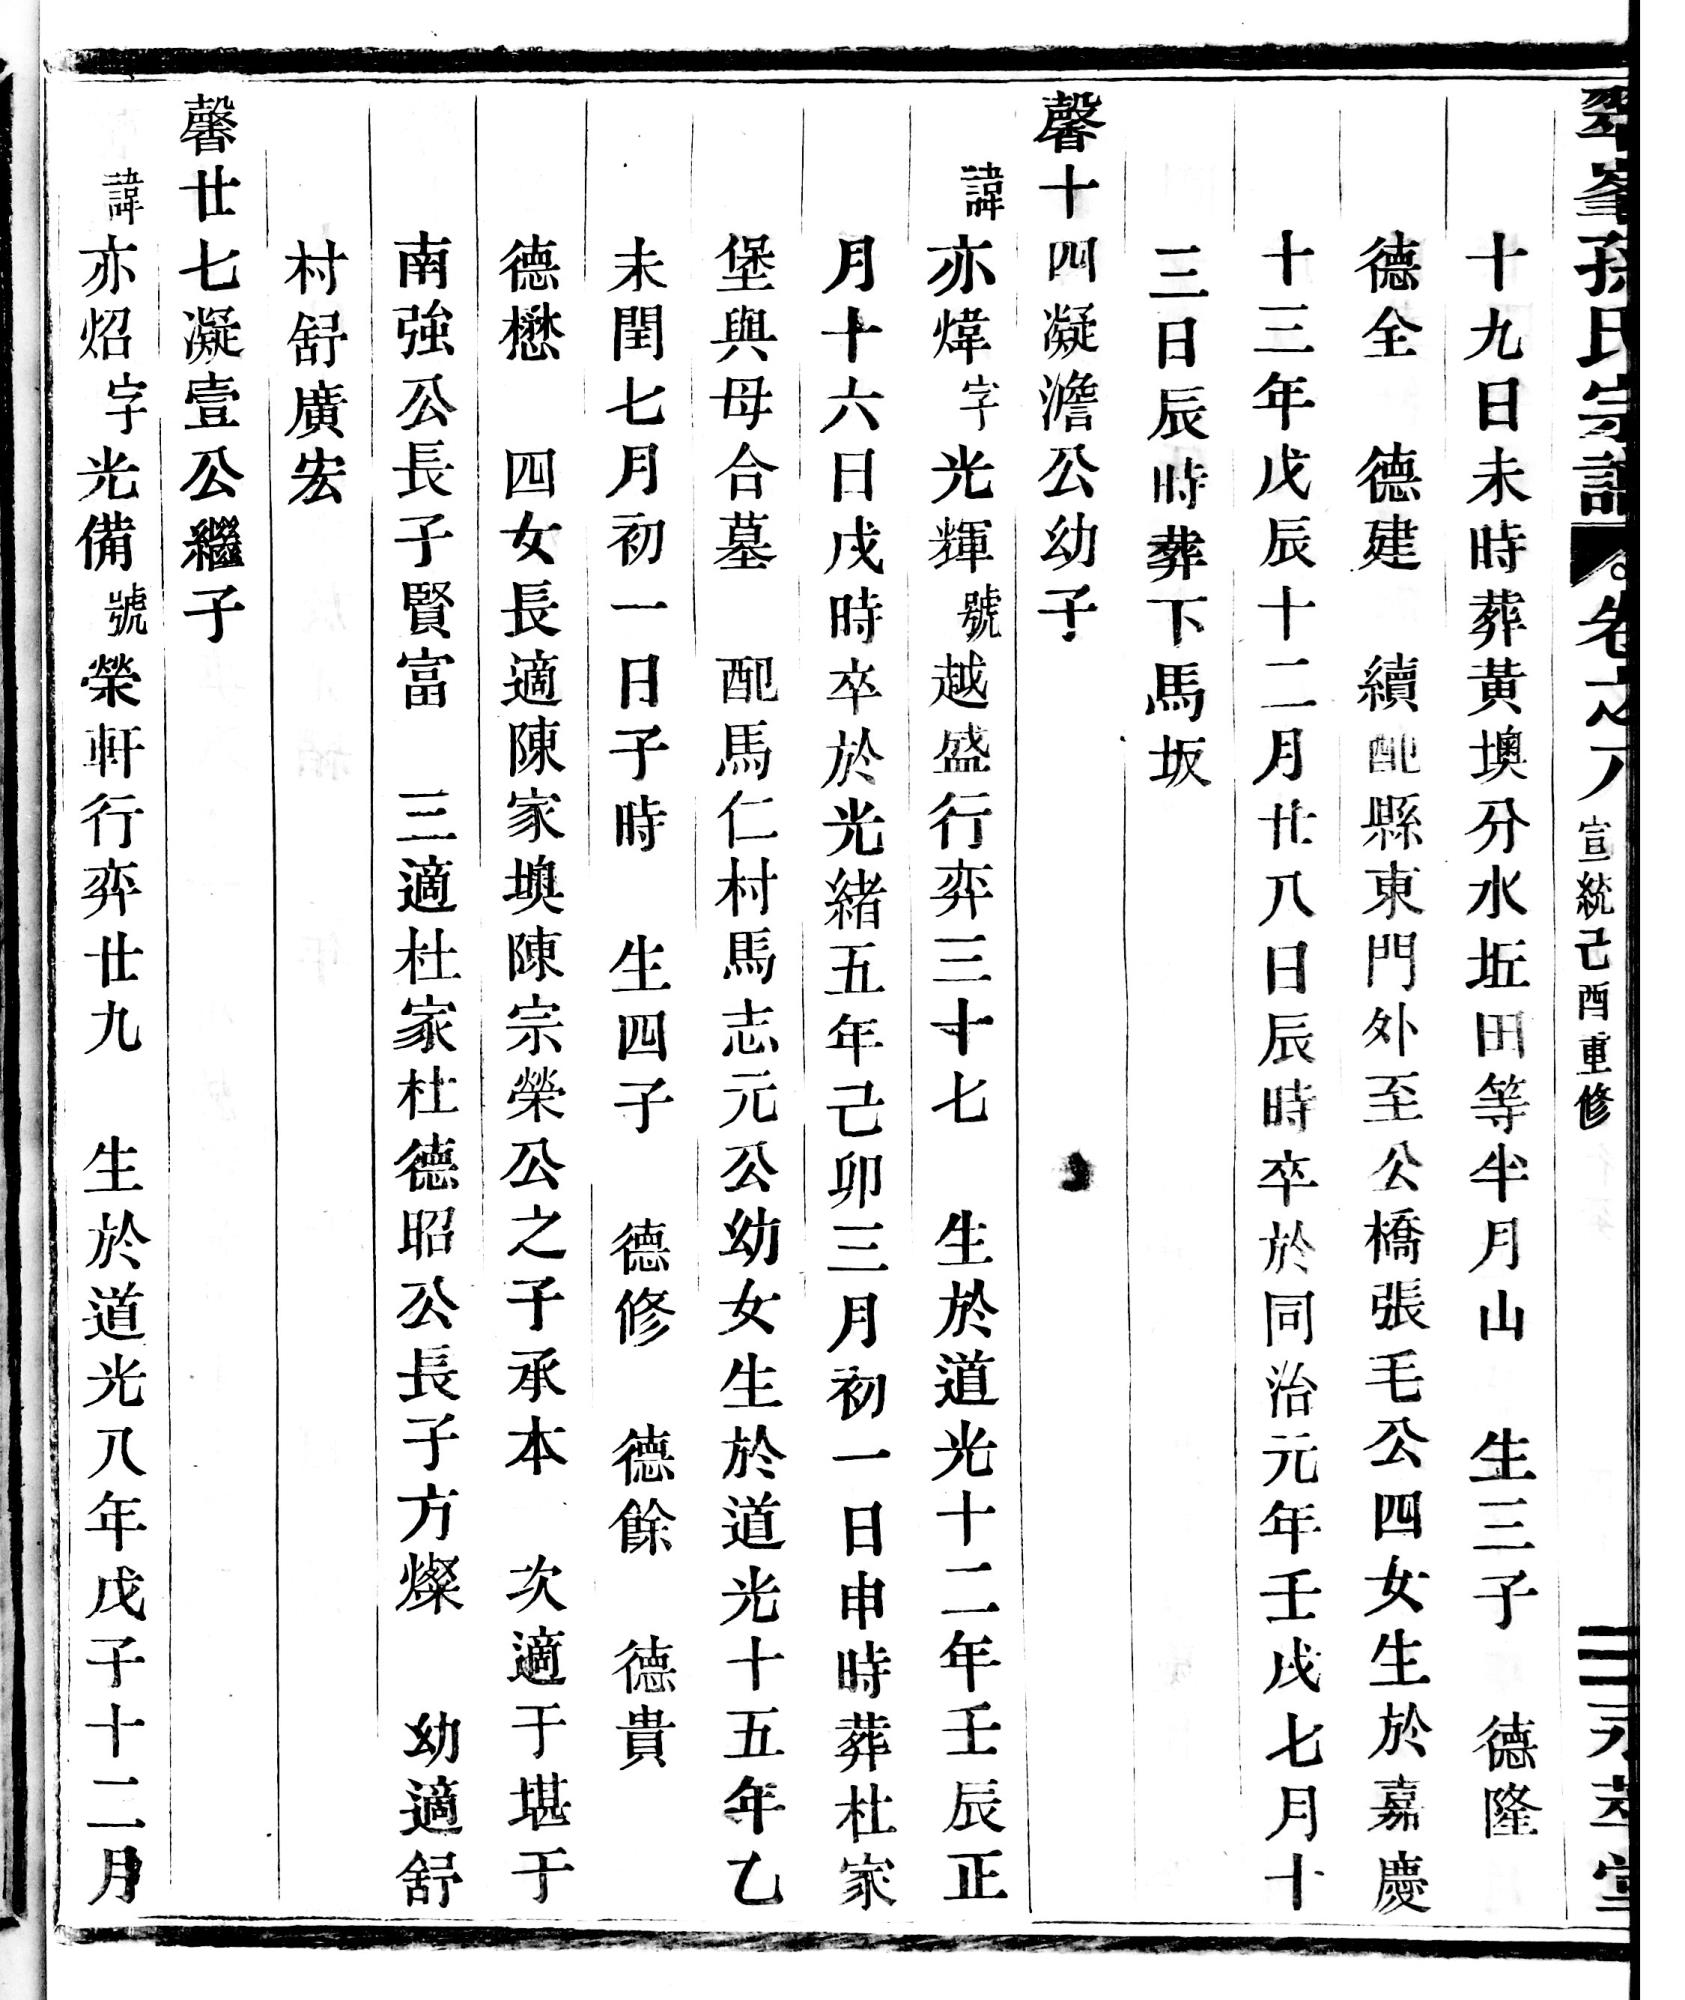 翠峯孫氏宗譜 卷之八 宣統己酉重修 三 永萃堂
十九日未時葬黃墺分水坵田等半月山 生三子 德隆
德全 德建 續配縣東門外至公橋張毛公四女生於嘉慶
十三年戊辰十二月廿八日辰時卒於同治元年壬戌七月十
三日辰時葬下馬坂
馨十四凝澹公幼子
諱亦煒字光輝號越盛行弈三十七 生於道光十二年壬辰正
月十六日戌時卒於光緒五年己卯三月初一日申時葬杜家
堡與母合墓 配馬仁村馬志元公幼女生於道光十五年乙
未閏七月初一日子時 生四子 德修 德餘 德貴
德懋 四女長適陳家墺陳宗榮公之子承本 次適于堪于
南強公長子賢富 三適杜家杜德昭公長子方燦 幼適舒
村舒廣宏
馨廿七凝壹公繼子
諱亦炤字光備號榮軒行弈廿九 生於道光八年戊子十二月